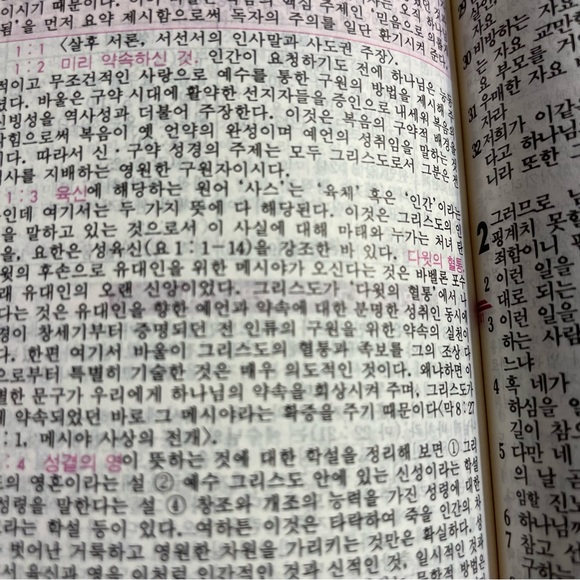 이시기 때문이다.
됨'을 먼저 요약 제시함으로써 독자의 주의를 일단 환기시켜 준다.
1:1 〈살후 서론, 서선서의 인사말과 사도권 주장〉.
1:2 미리 약속하신 것. 인간이 요청하기도 전에 하나님은 능동
적이고 무조건적인 사랑으로 예수를 통한 구원의 방법을 제시해 주
셨다. 바울은 구약 시대에 활약한 선지자들을 증인으로 내세워 복음의
신빙성을 역사성과 더불어 주장한다. 이것은 복음의 구약적 배경을
밝힘으로써 복음이 옛 언약의 완성이며 예언의 성취임을 말하는 것
이다. 따라서 신·구약 성경의 주제는 모두 그리스도로서 그분은 전
역사를 지배하는 영원한 구원자이시다.
1:3 육신에 해당하는 원어 '사스'는 '육체' 혹은 '인간'이라는
인데 여기서는 두 가지 뜻에 다 해당된다. 이것은 그리스도의 인
을 말하고 있는 것으로서 이 사실에 대해 마태와 누가는 처녀 탄
을, 요한은 성육신(요 1:1-14)을 강조한 바 있다. 다윗의 혈통.
윗의 후손으로 유대인을 위한 메시야가 오신다는 것은 바벨론 포수
래 유대인의 오랜 신앙이었다. 그리스도가 '다윗의 혈통'에서 나
다는 것은 유대인을 향한 예언과 약속에 대한 분명한 성취인 동시에
경이 창세기부터 증명되던 전 인류의 구원을 위한 약속의 실천이
다. 한편 여기서 바울이 그리스도의 혈통과 족보를 그의 조상 다
으로부터 특별히 기술한 것은 매우 의도적인 것이다. 왜냐하면 이
별한 문구가 우리에게 하나님의 약속을 회상시켜 주며, 그리스도가
에 약속되었던 바로 그 메시야라는 확증을 주기 때문이다(막 8:27
:1, 메시야 사상의 전개〉.
:4 성결의 영이 뜻하는 것에 대한 학설을 정리해 보면 ① 그리
도의 영혼이라는 설 ② 예수 그리스도 안에 있는 신성이라는 설
성령을 말한다는 설 ④ 창조와 개조의 능력을 가진 성령에 대한
라는 학설 등이 있다. 여하튼 이것은 타락하여 죽을 인간의 차
벗어난 거룩하고 영원한 차원을 가리키는 것만은 확실하다. 성
서 육신과 영은 이처럼 인간적인 것과 신적인 것, 일시적인 것과
방법은
29
30 비방하는 자요
는 자요 교만
요 부모를
31 우매한 자요
자라
32 저희가 이같
다고 하나님
니라 또한
2 그러므로
핑계치 못할
죄함이니
2 이런 일을
대로 되는
3 이런 일을
하는 사람
느냐
4 혹 네가
하심을
길이 참
5 다만 네
의 날 곧
임할 진
6 하나님께
7 참고 선
구하는